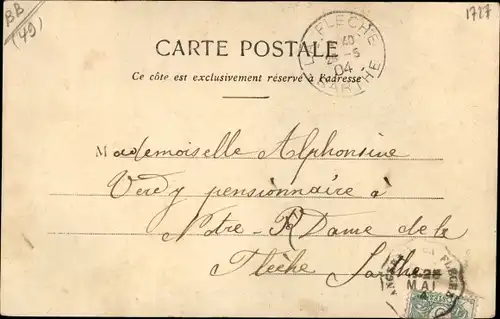 BB
(49)
1727
CARTE POSTALE
LA FLÈCHE
40
-5
04
SARTHE
Ce côté est exclusivement réservé à l'adresse
Mademoiselle Alphonsine
Verdy pensionnaire à
Notre-Dame de la
Flèche Sarthe
MAI